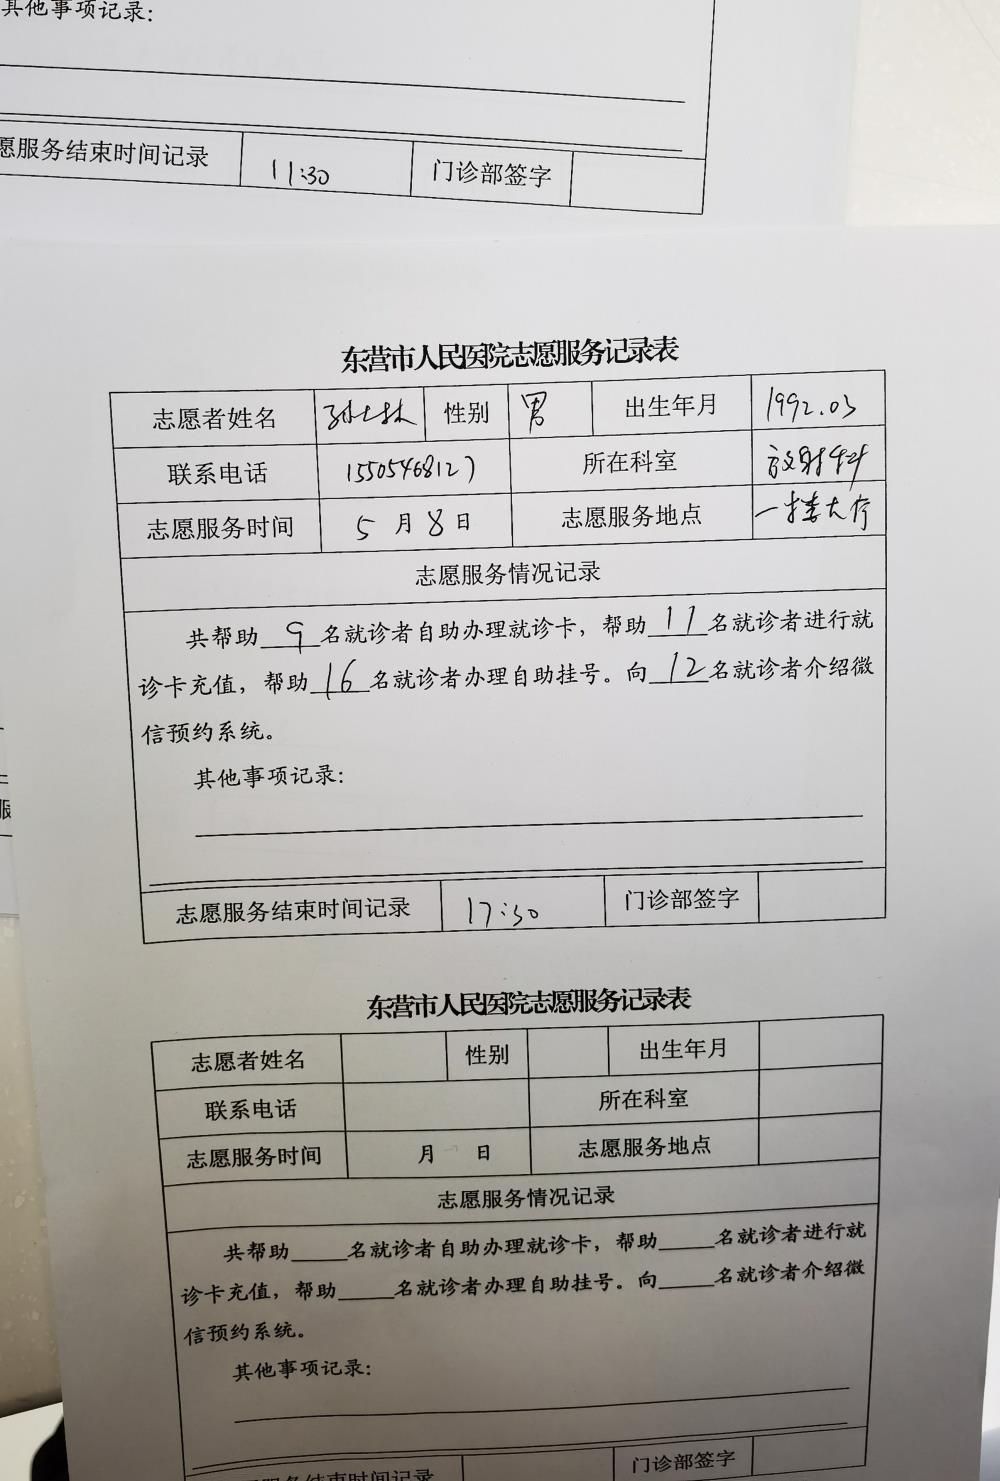 其他事项记录：
愿服务结束时间记录 11:30 门诊部签字
东营市人民医院志愿服务记录表
志愿者姓名 孙士林 性别 男 出生年月 1992.03
联系电话 15505468127 所在科室 放射科
志愿服务时间 5月8日 志愿服务地点 一楼大厅
志愿服务情况记录
共帮助9名就诊者自助办理就诊卡，帮助11名就诊者进行就
诊卡充值，帮助16名就诊者办理自助挂号。向12名就诊者介绍微
信预约系统。
其他事项记录：
志愿服务结束时间记录 17:30 门诊部签字
东营市人民医院志愿服务记录表
志愿者姓名 性别 出生年月
联系电话 所在科室
志愿服务时间 月 日 志愿服务地点
志愿服务情况记录
共帮助_____名就诊者自助办理就诊卡，帮助_____名就诊者进行就
诊卡充值，帮助_____名就诊者办理自助挂号。向_____名就诊者介绍微
信预约系统。
其他事项记录：
服务结束时间记录 门诊部签字